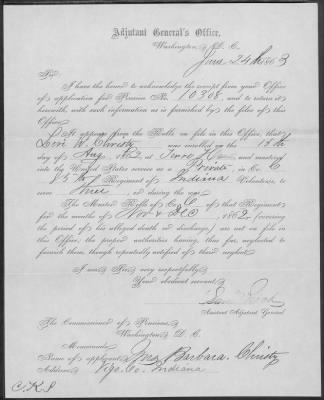 Adjutant General's Office,
Washington, D. C.
June 24th 1863
Sir:
I have the honor to acknowledge the receipt from your Office
of application for Pension No. 10308, and to return it
herewith, with such information as is furnished by the files of this
Office.
It appears from the Rolls on file in this Office, that
Levi W. Christy was enrolled on the 15th
day of Aug, 1862, at Terre and mustered
into the United States service as a Private, in Co. C
85th Regiment of Indiana Volunteers, to
serve Three or during the war.
The Muster Rolls of Co. C of that Regiment
for the months of Nov & Dec, 1862 (covering
the period of his alleged death or discharge) are not on file in
this Office; the proper authorities having, thus far, neglected to
furnish them, though repeatedly notified of their neglect.
I am, Sir, very respectfully,
Your obedient servant,
Assistant Adjutant General
The Commissioner of Pensions,
Washington, D. C.
Memoranda:
Name of applicant, Barbara Christy
Address, Vigo Co. Indiana